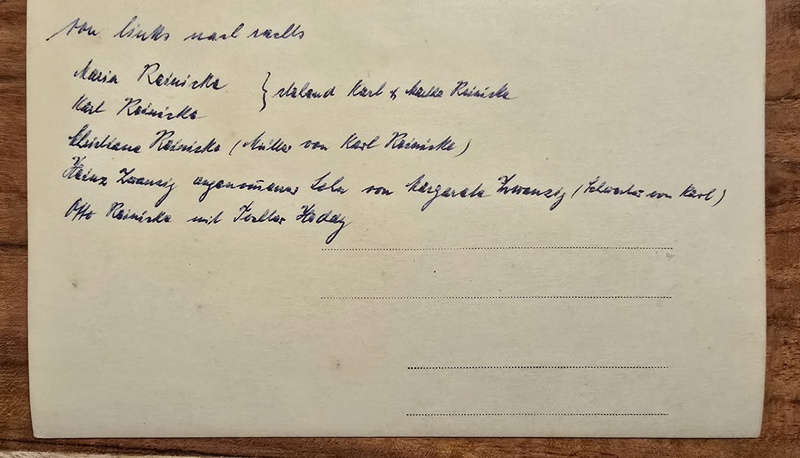 von links nach rechts
Maria Reinicke } stehend Karl & Martha Reinicke
Karl Reinicke
Christiane Reinicke (Mutter von Karl Reinicke)
Heinz Zwanzig angenommener Sohn von Margarete Zwanzig (Schwester von Karl)
Otto Reinicke mit Tochter